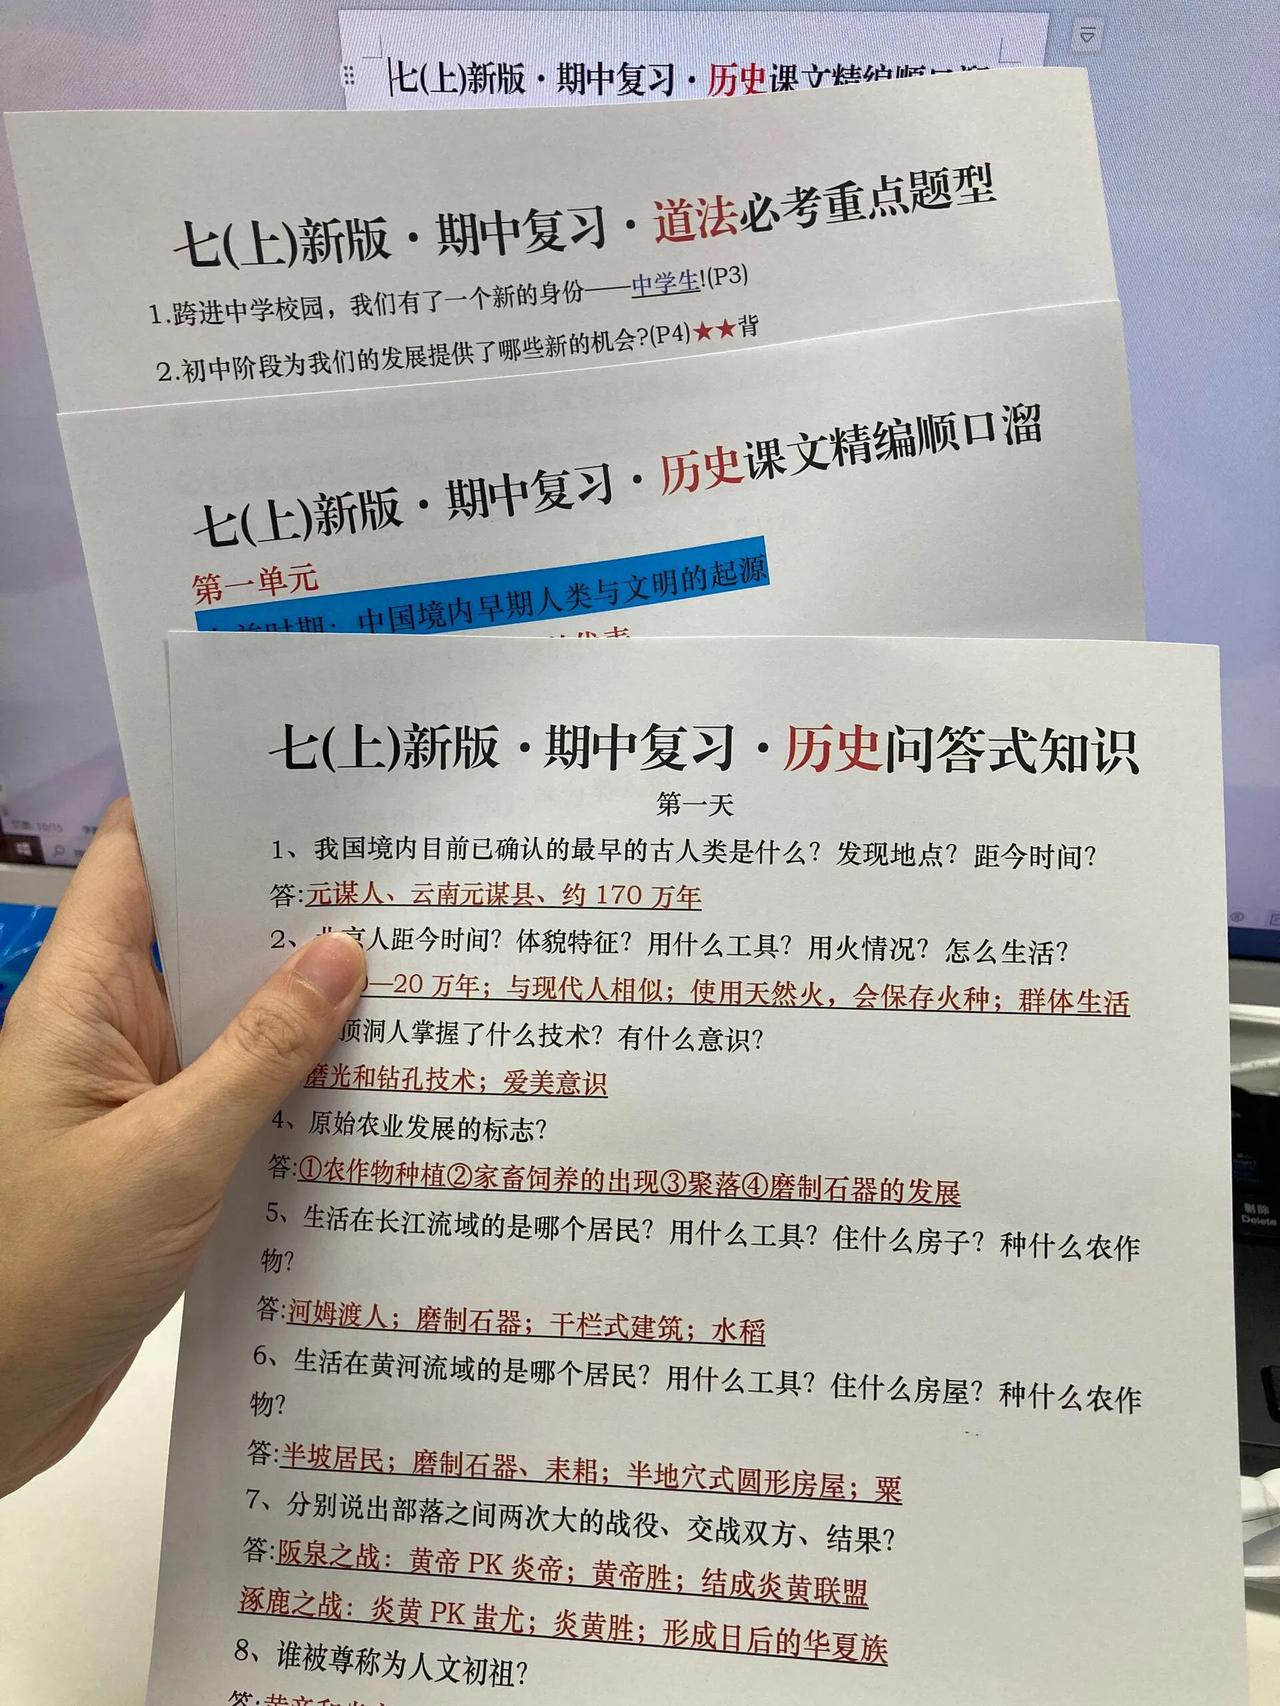 七(上)新版·期中复习·历史课文精编顺口溜
七(上)新版·期中复习·道法必考重点题型
1.跨进中学校园，我们有了一个新的身份——中学生!(P3)
2.初中阶段为我们的发展提供了哪些新的机会?(P4)★★背
七(上)新版·期中复习·历史课文精编顺口溜
第一单元
时期：中国境内早期人类与文明的起源
代表
七(上)新版·期中复习·历史问答式知识
第一天
1、我国境内目前已确认的最早的古人类是什么？发现地点？距今时间？
答:元谋人、云南元谋县、约 170 万年
2、北京人距今时间？体貌特征？用什么工具？用火情况？怎么生活？
0—20 万年；与现代人相似；使用天然火，会保存火种；群体生活
顶洞人掌握了什么技术？有什么意识？
磨光和钻孔技术；爱美意识
4、原始农业发展的标志？
答:①农作物种植②家畜饲养的出现③聚落④磨制石器的发展
5、生活在长江流域的是哪个居民？用什么工具？住什么房子？种什么农作
物？
答:河姆渡人；磨制石器；干栏式建筑；水稻
6、生活在黄河流域的是哪个居民？用什么工具？住什么房屋？种什么农作
物？
答:半坡居民；磨制石器、耒耜；半地穴式圆形房屋；粟
7、分别说出部落之间两次大的战役、交战双方、结果？
答:阪泉之战：黄帝 PK 炎帝；黄帝胜；结成炎黄联盟
涿鹿之战：炎黄 PK 蚩尤；炎黄胜；形成日后的华夏族
8、谁被尊称为人文初祖？
答:黄帝和炎帝
删除
Delete